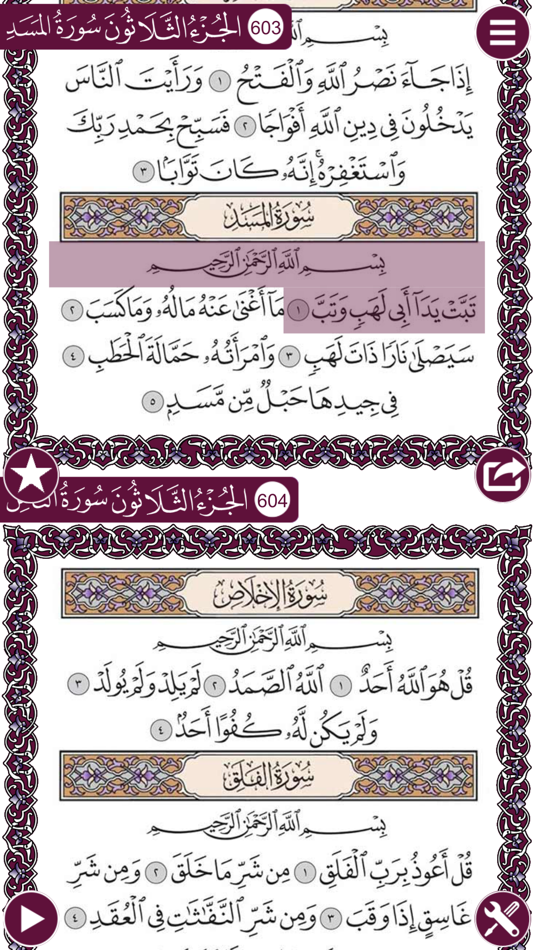 الجُزْءُ الثَّلَاثُونَ سُورَةُ المَسَدِ 603
بِسْمِ اللَّهِ
إِذَا جَآءَ نَصْرُ ٱللَّهِ وَٱلْفَتْحُ ١ وَرَأَيْتَ ٱلنَّاسَ
يَدْخُلُونَ فِى دِينِ ٱللَّهِ أَفْوَاجًا ٢ فَسَبِّحْ بِحَمْدِ رَبِّكَ
وَٱسْتَغْفِرْهُ ۚ إِنَّهُۥ كَانَ تَوَّابًۢا ٣
سُورَةُ المَسَدِ
بِسْمِ ٱللَّهِ ٱلرَّحْمَٰنِ ٱلرَّحِيمِ
تَبَّتْ يَدَآ أَبِى لَهَبٍ وَتَبَّ ١ مَآ أَغْنَىٰ عَنْهُ مَالُهُۥ وَمَا كَسَبَ ٢
سَيَصْلَىٰ نَارًا ذَاتَ لَهَبٍ ٣ وَٱمْرَأَتُهُۥ حَمَّالَةَ ٱلْحَطَبِ ٤
فِى جِيدِهَا حَبْلٌ مِّن مَّسَدٍۭ ٥
الجُزْءُ الثَّلَاثُونَ سُورَةُ 604
سُورَةُ الإِخْلَاصِ
بِسْمِ ٱللَّهِ ٱلرَّحْمَٰنِ ٱلرَّحِيمِ
قُلْ هُوَ ٱللَّهُ أَحَدٌ ١ ٱللَّهُ ٱلصَّمَدُ ٢ لَمْ يَلِدْ وَلَمْ يُولَدْ ٣
وَلَمْ يَكُن لَّهُۥ كُفُوًا أَحَدٌۢ ٤
سُورَةُ الفَلَقِ
بِسْمِ ٱللَّهِ ٱلرَّحْمَٰنِ ٱلرَّحِيمِ
قُلْ أَعُوذُ بِرَبِّ ٱلْفَلَقِ ١ مِن شَرِّ مَا خَلَقَ ٢ وَمِن شَرِّ
غَاسِقٍ إِذَا وَقَبَ ٣ وَمِن شَرِّ ٱلنَّفَّٰثَٰتِ فِى ٱلْعُقَدِ ٤